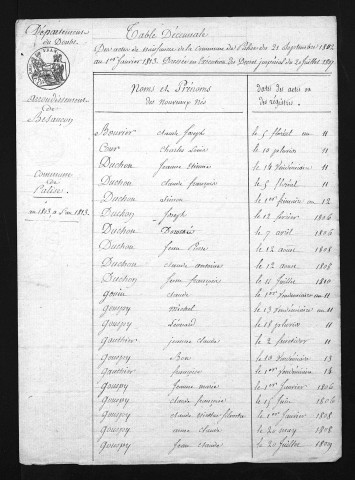 Département
du Doubs
Arrondissement
de
Besançon
Commune
de
Palise
an 1803 à l'an 1813.
Table Décennale
Des actes de naissance de la commune de Palise du 21 septembre 1802
au 1er janvier 1813. Dressée en Exécution du Décret impérial du 20 juillet 1807
Noms et Prénoms des Nouveaux Nés
Date des actes et des registres
Bouvier claude joseph le 5 floréal an 11
Cour charles Louis le 10 pluviose 11
Duchon jeanne Etienne le 14 Vendémiaire 11
Duchon claude françois le 5 floréal 11
Duchon simon le 1er frimaire an 12
Duchon joseph le 12 février 1806
Duchon le 7 avril 1806
Duchon jean Pierre le 12 aout 1808
Duchon claude antoine le 12 aout 1808
Duchon jean françois le 11 juillet 1810
gouin claude le 1er Vendémiaire an 11
goupy michel le 13 Vendémiaire an 11
goupy Léonard le 18 pluviose 11
gauthier jeanne claude le 2 fructidor 11
goupy le 10 Vendémiaire 13
gauthier françoise le 1er Vendémiaire 14
goupy jeanne marie le 1er janvier 1806
goupy claude françoise le 15 juin 1806
goupy claude le 1er janvier 1808
goupy anne claude le 20 may 1808
goupy jean claude le 20 juillet 1809